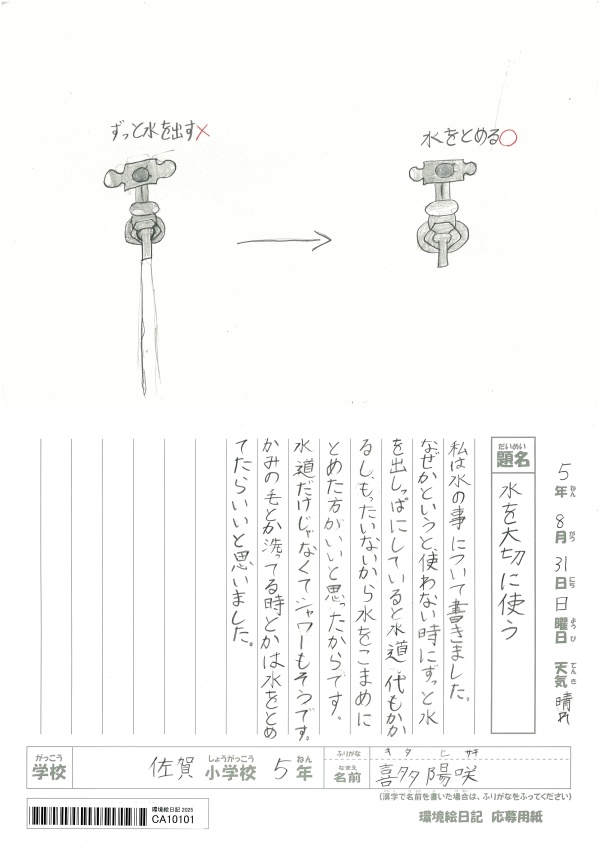 ずっと水を出す×
水をとめる○
5年 8月 31日 日曜日 天気 晴れ
ねん がつ にち ようび てんき
だいめい
題名
水を大切に使う
私は水の事について書きました。
なぜかというと、使わない時にずっと水
を出しっぱにしていると水道代もかか
るし、もったいないから水をこまめに
とめた方がいいと思ったからです。
水道だけじゃなくてシャワーもそうです。
かみの毛とか洗ってる時とかは水をとめ
てたらいいと思いました。
がっこう
学校
しょうがっこう ねん
佐賀 小学校 5年
ふりがな
キタ ヒサキ
なまえ
名前
喜多 陽咲
(漢字で名前を書いた場合は、ふりがなをふってください)
環境絵日記 2025
CA10101
環境絵日記 応募用紙